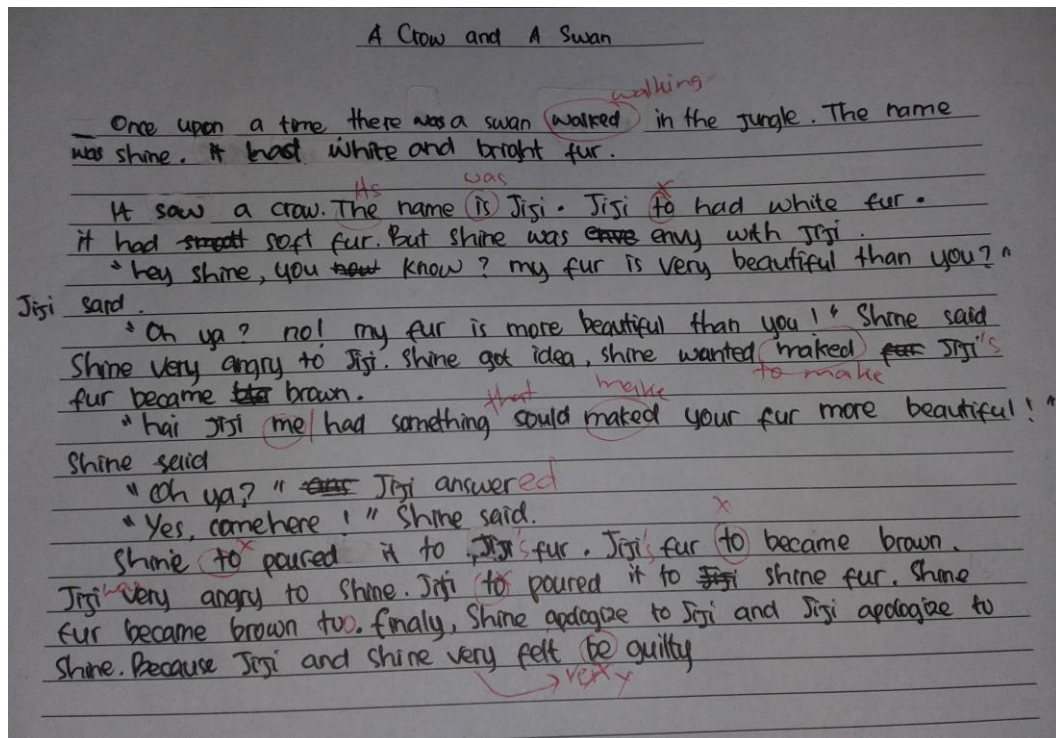 A Crow and A Swan
walking
Once upon a time there was a swan walked in the jungle. The name
was shine. it had white and bright fur.
Its was x
It saw a crow. The name is Jiji. Jiji to had white fur.
it had smooth soft fur. But shine was enve envy with Jiji.
"hey shine, you now know? my fur is very beautiful than you?"
Jiji said.
"Oh ya? no! my fur is more beautiful than you!" Shine said
Shine very angry to Jiji. Shine got idea, shine wanted maked fur Jiji's
to make
fur became brown.
that make
"hai Jiji me had something sould maked your fur more beautiful!"
Shine said
"Oh ya?" Jiji answered
x
"Yes, comehere!" Shine said.
x
Shine to poured it to Jiji's fur. Jiji's fur to became brown.
was x
Jiji very angry to Shine. Jiji to poured it to Jiji shine fur. Shine
fur became brown too. finaly, Shine apologize to Jiji and Jiji apologize to
Shine. Because Jiji and shine very felt be guilty
very